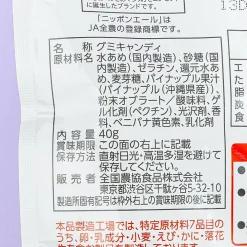 誕生したブランドです。
「ニッポンエール」は
JA全農の登録商標です。
13D
名称 グミキャンディ
原材料名 水あめ(国内製造)、砂糖(国
内製造)、ゼラチン、還元水あ
め、麦芽糖、パイナップル果汁
(パイナップル(沖縄県産))、
粉末オブラート/酸味料、ゲ
ル化剤(ペクチン)、光沢剤、香
料、ベニバナ黄色素、乳化剤
内容量 40g
賞味期限 この面の右上に記載
保存方法 直射日光・高温多湿を避けて
保存してください。
販売者 全国農協食品株式会社
東京都渋谷区千駄ヶ谷5-32-10
製造所 製造所固有記号は枠外右上の賞味期限の後に記載
本品製造工場では、特定原材料7品目の
うち、卵・乳成分・小麦・えび・かに・落花